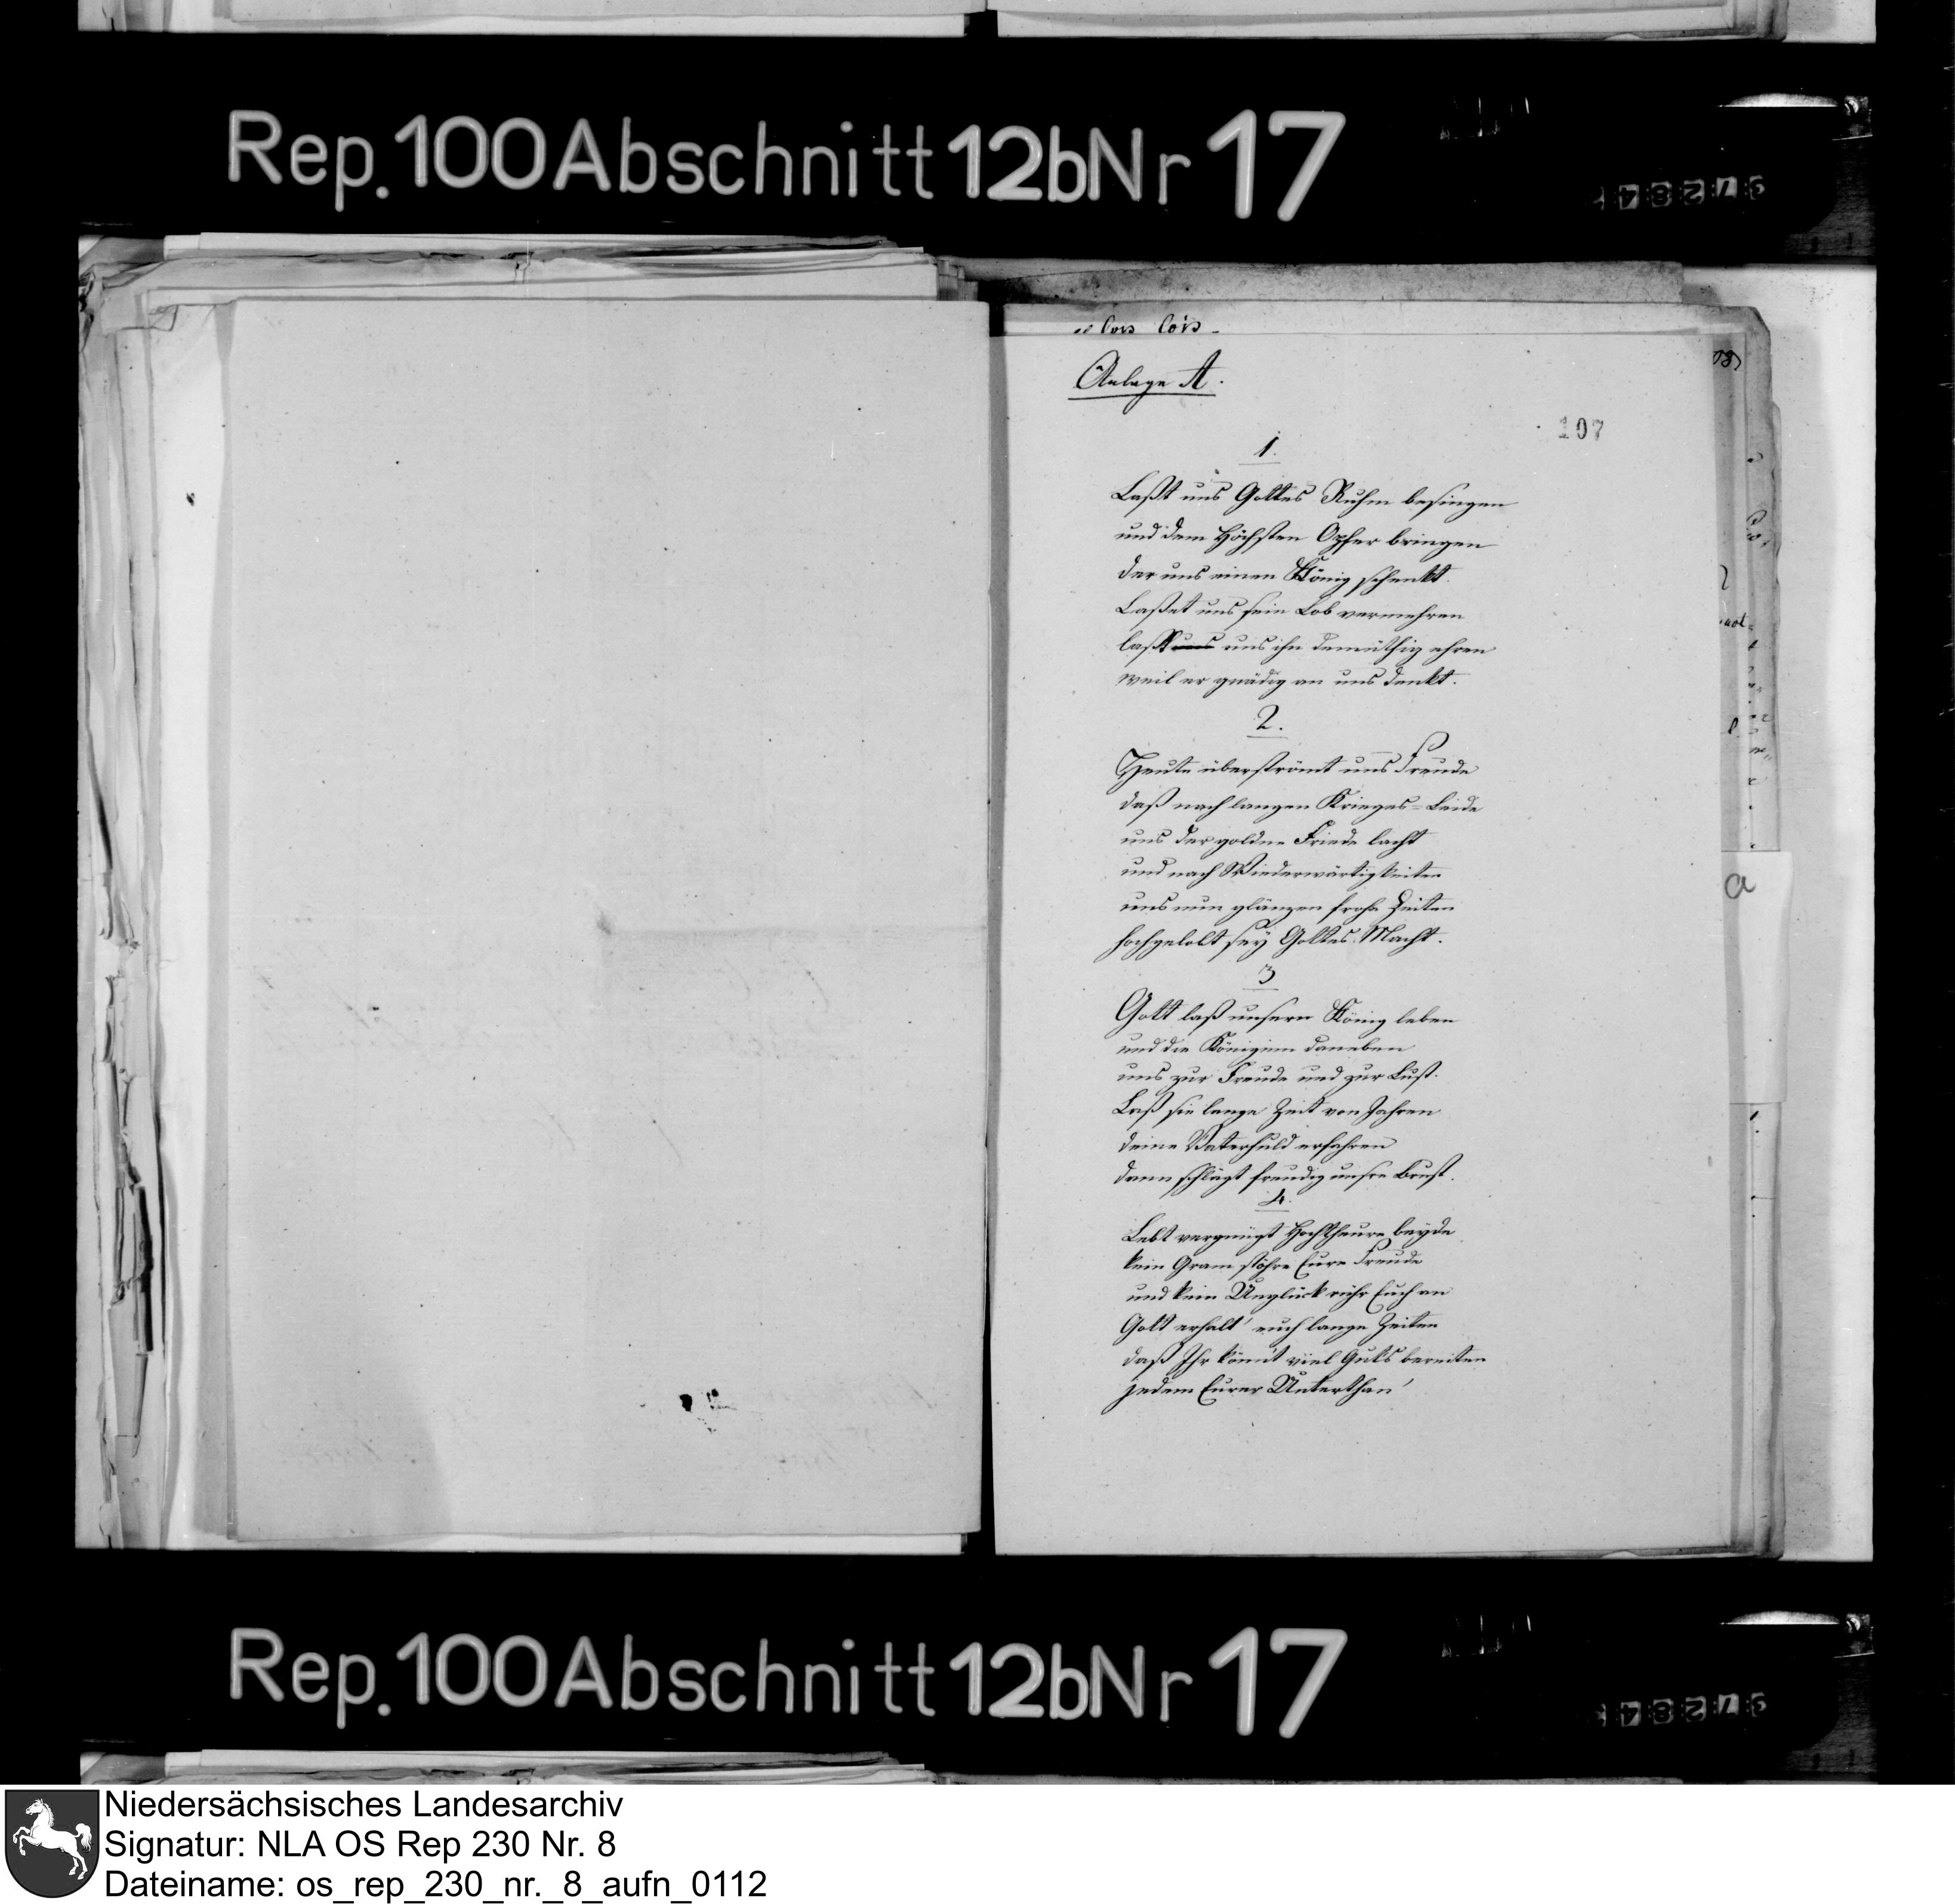 Rep. 100 Abschnitt 12b Nr 17
Anlage A.
107
1.
Laßt uns Gottes Ruhm besingen
und dem Höchsten Opfer bringen
der uns einen König schenkt.
Laßet uns sein Lob vermehren
laßt uns uns ihn demüthig ehren
weil er gnädig an uns denkt.
2.
Heute überströmt uns Freude
daß nach langen Krieges-Leide
uns der goldne Friede lacht
und nach Wiederwärtigkeiten
uns nun glänzen frohe Zeiten
hochgelobt sey Gottes Macht.
3
Gott laß unsern König leben
und die Königinn daneben
uns zur Freude und zur Lust.
Laß sie lange Zeit von Jahren
deine Vaterhuld erfahren
dann schlägt freudig unsre Brust.
4.
Lebt vergnügt Hochtheure beyde
kein Gram stöhre Eure Freude
und kein Unglück rühr Euch an
Gott erhalt' euch lange Zeiten
daß Ihr könn't viel Guts bereiten
jedem Eurer Unterthan'
a
Rep. 100 Abschnitt 12b Nr 17
Niedersächsisches Landesarchiv
Signatur: NLA OS Rep 230 Nr. 8
Dateiname: os_rep_230_nr._8_aufn_0112